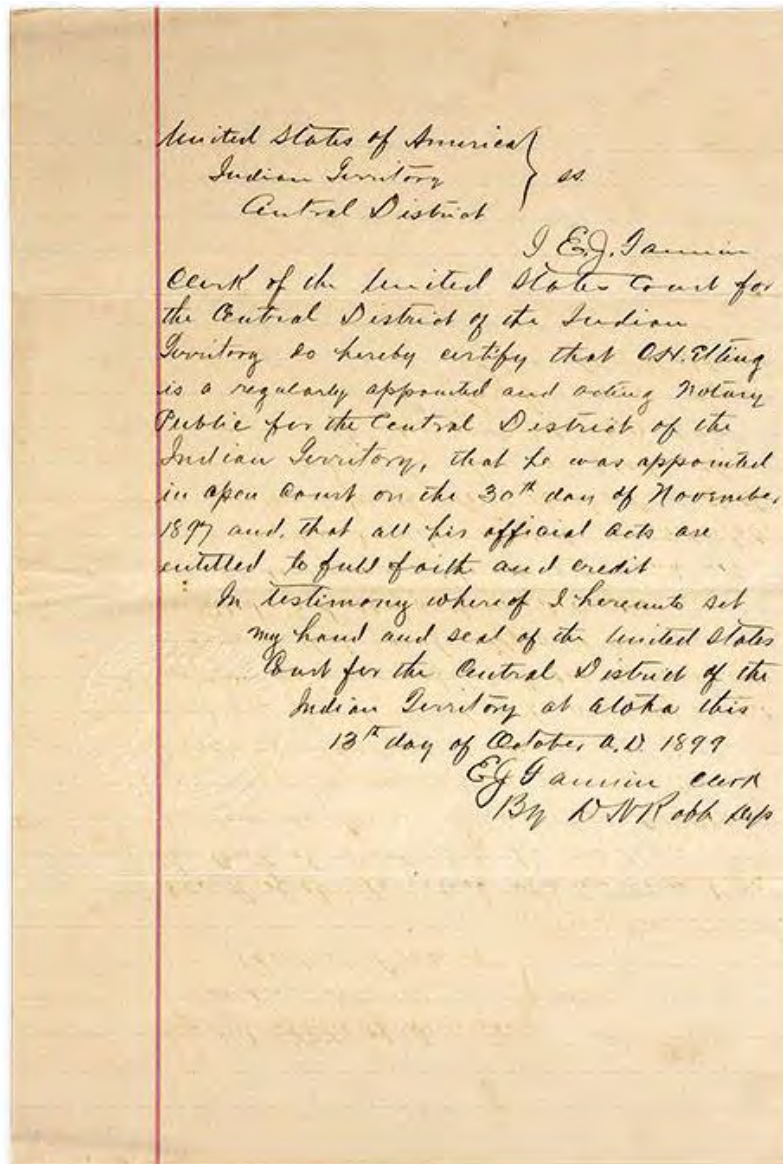 United States of America
Indian Territory } ss.
Central District
I E.J. Fannin
Clerk of the United States Court for
the Central District of the Indian
Territory do hereby certify that C.H. Elting
is a regularly appointed and acting Notary
Public for the Central District of the
Indian Territory, that he was appointed
in open Court on the 30th day of November
1897 and, that all his official acts are
entitled to full faith and credit
In testimony whereof I hereunto set
my hand and seal of the United States
Court for the Central District of the
Indian Territory at Atoka this
13th day of October A.D. 1899
E J Fannin Clerk
By D N Robb Dep